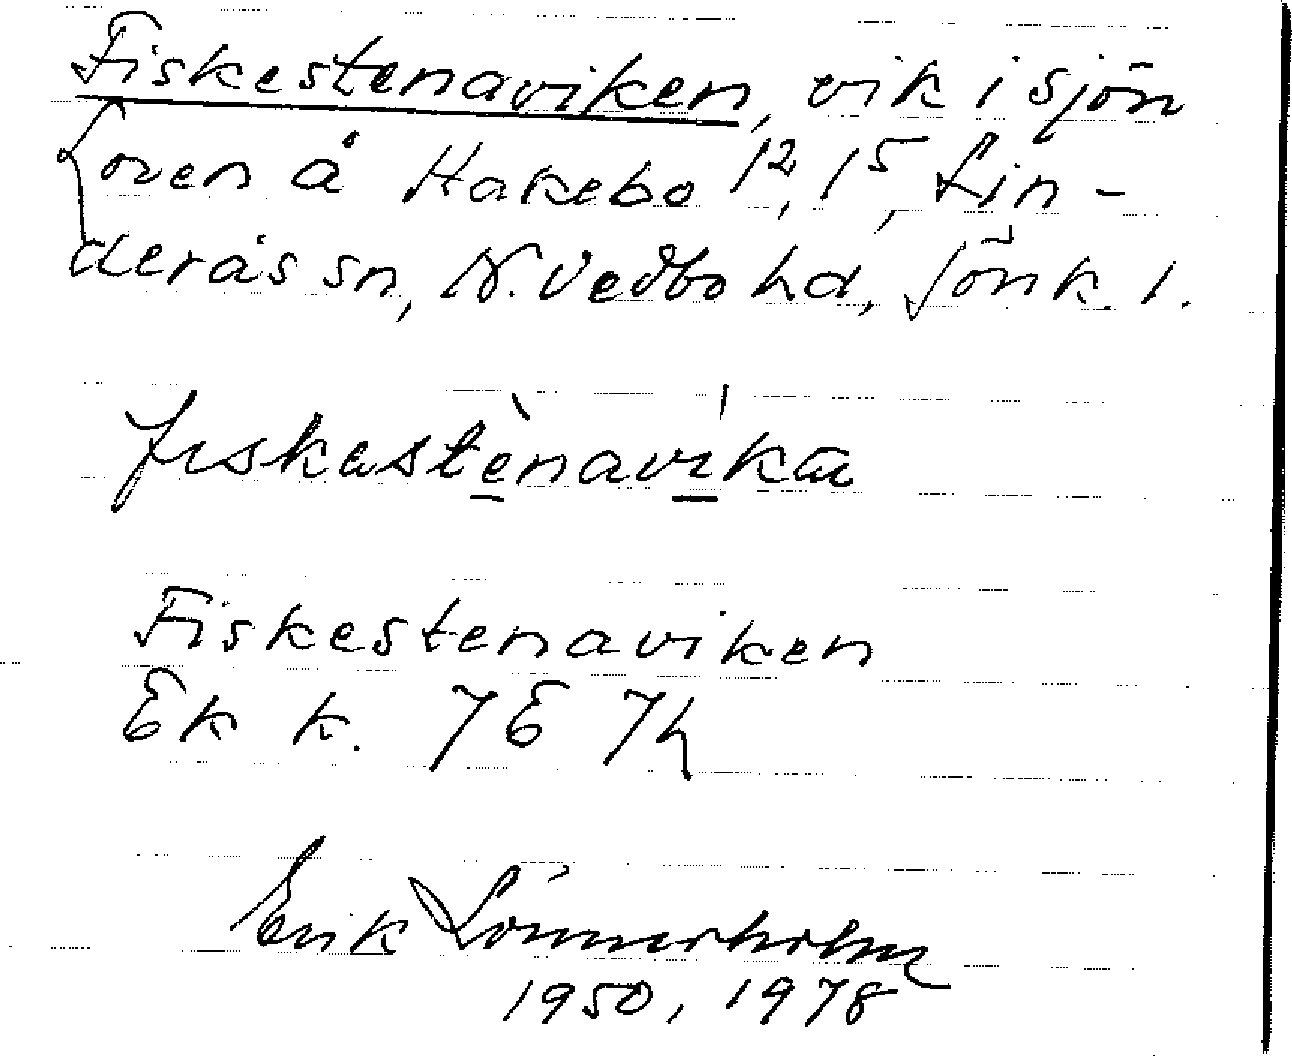 Fiskestenaviken, vik i sjön
Loven å Hakebo 1²,1⁵, Lin-
derås sn, N. Vedbo hd, Jönk. l.
Fiskestenaviken
Ek k. 7E 7h
Erik Lönnerholm
1950, 1978